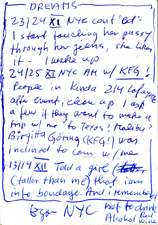 DREAMS
23/24 XI NYC cont 'Bed':
I start touching her pussy
through her jeans, she likes
it - I wake up
24/25 XI NYC AM w/ KFG!
People in kinda 214 Lafayette
after event, clean up I ask
a few if they want to make a
trip w/ me to Texas! (Malibu?)
Birgitta Göting (KFG!) was
inclined to com w/ me
13/14 XII Told a girl
(taller than me) that I am
into bondage. And I remembered
NYC but to drink
Red
Alcohol wine